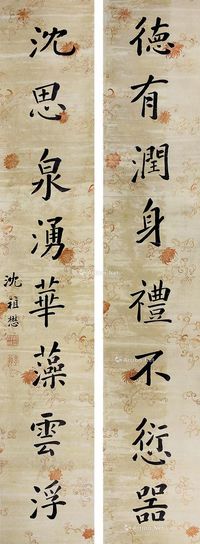 德有潤身禮不愆器
沈思泉湧華藻雲浮
沈祖懋